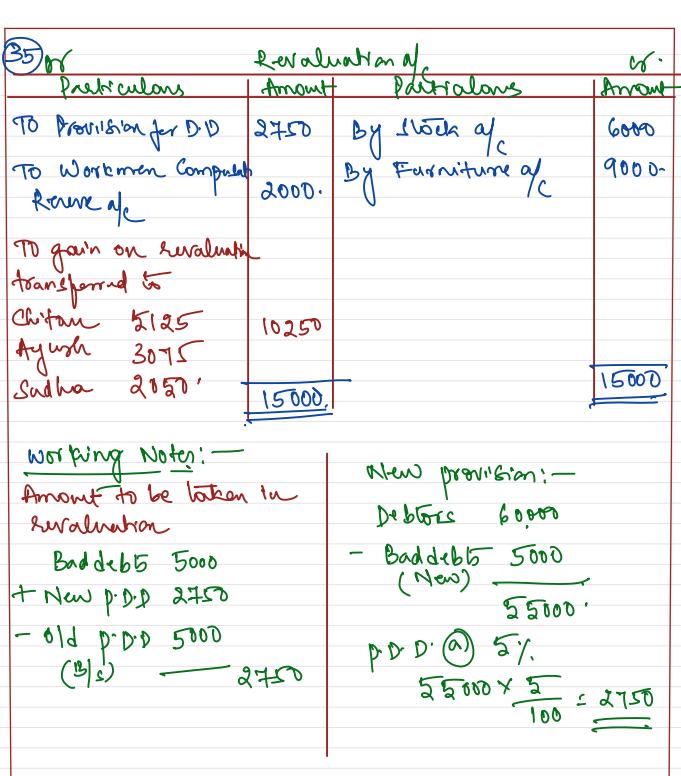 35 Dr Revaluation a/c Cr.
Particulars Amount Particulars Amount
To Provision for D.D 2750 By Stock a/c 6000
To Workmen Compensat 2000. By Furniture a/c 9000-
Reserve a/c
To gain on revaluation
transferred to
Chitan 5125 10250
Ayush 3075
Sudha 2050
15000 15000
Working Notes:-
Amount to be taken in
revaluation
Bad debts 5000
+ New P.D.D 2750
- Old P.D.D 5000
(B/s) 2750
New provision:-
Debtors 60,000
- Bad debts 5000
(New)
55000
P.D.D. @ 5%
55000 x 5/100 = 2750